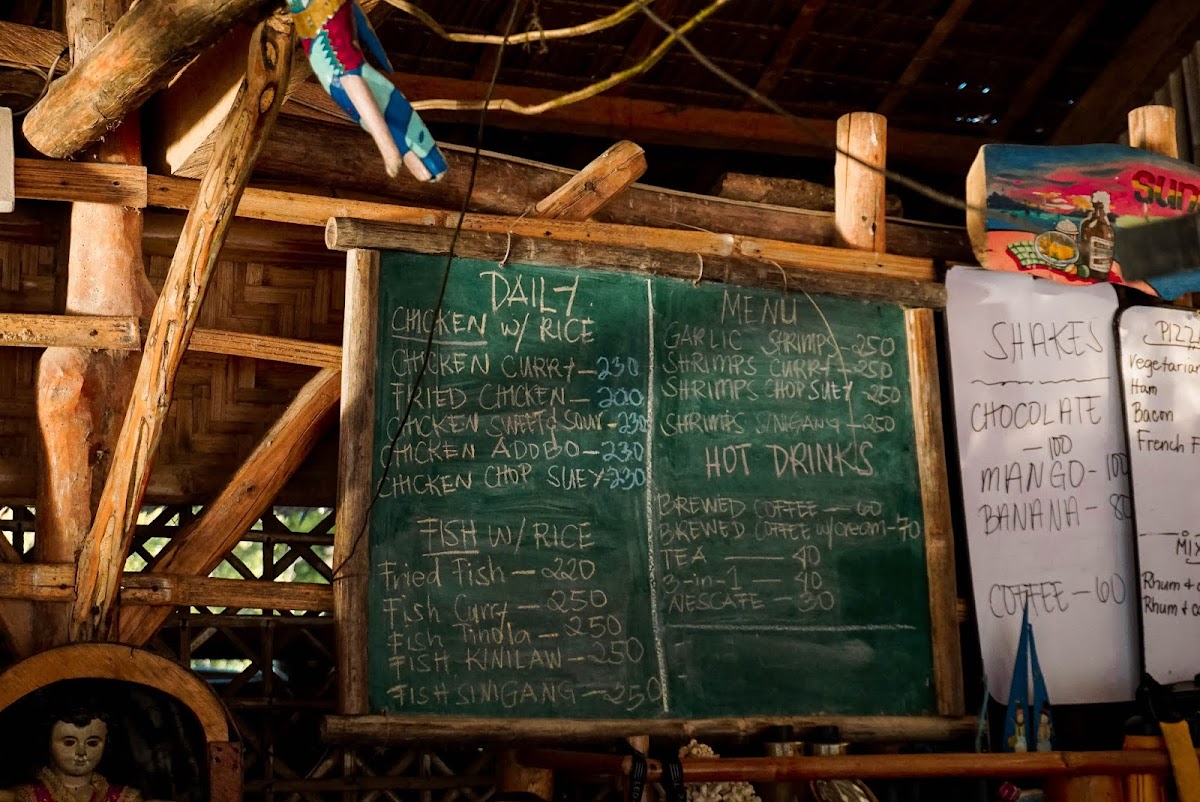 DAILY
CHICKEN W/ RICE
CHICKEN CURRY - 230
FRIED CHICKEN - 200
CHICKEN SWEET & SOUR - 230
CHICKEN ADOBO - 230
CHICKEN CHOP SUEY - 230
FISH W/ RICE
Fried Fish - 220
Fish Curry - 250
Fish Tinola - 250
FISH KINILAW - 250
FISH SINIGANG - 250
MENU
GARLIC SHRIMPS - 250
SHRIMPS CURRY - 250
SHRIMPS CHOP SUEY - 250
SHRIMPS SINIGANG - 250
HOT DRINKS
BREWED COFFEE - 60
BREWED COFFEE w/cream - 70
TEA - 40
3-in-1 - 40
NESCAFE - 30
SHAKES
CHOCOLATE
- 100
MANGO - 100
BANANA - 80
COFFEE - 60
PIZZ
Vegetarian
Ham
Bacon
French F
MIX
Rhum & c
Rhum & co